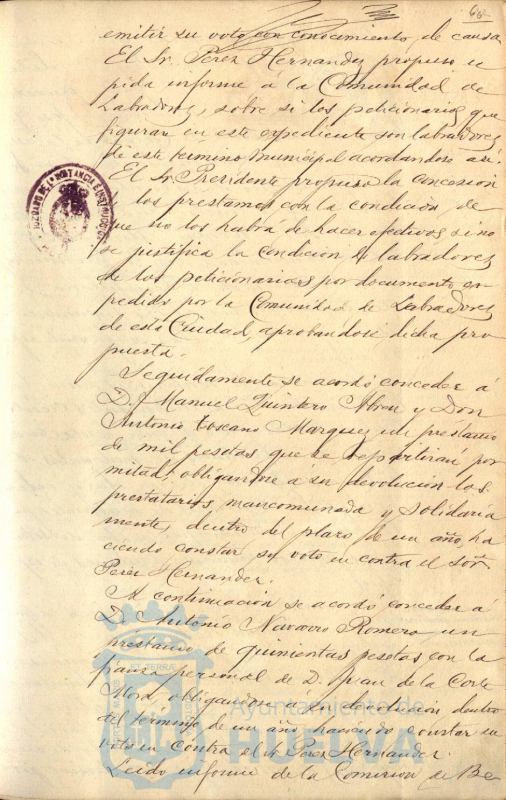 60
emitir su voto con conocimiento de causa
El Sr. Perez Hernandez propuso se
pida informe a la Comunidad de
Labradores, sobre si los peticionarios que
figuran en este expediente son labradores
de este termino municipal acordandose asi.
El Sr. Presidente propuso la concesion
de los prestamos con la condicion, de
que no los habra de hacer efectivos si no
se justifica la condicion de labradores
de los peticionarios por documento ex
pedido por la Comunidad de Labradores
de esta Ciudad, aprobandose dicha pro
puesta.
Seguidamente se acordó conceder á
D. Manuel Quintero Abreu y Don
Antonio Toscano Marquez un prestamo
de mil pesetas que se repartirán por
mitad, obligandose á su devolucion los
prestatarios, mancomunada y solidaria
mente, dentro del plazo de un año, ha
ciendo constar su voto en contra el señor
Perez Hernandez.
A continuacion se acordó conceder á
D. Antonio Navarro Romero un
prestamo de quinientas pesetas con la
fianza personal de D. Juan de la Corte
Mora obligandose a su devolucion dentro
del termino de un año haciendo constar su
voto en contra el Sr. Perez Hernandez.
Leido informe de la Comision de Be
JUZGADO DE 1ª INSTANCIA E INSTRUCCION
Ayuntamiento de
HUELVA